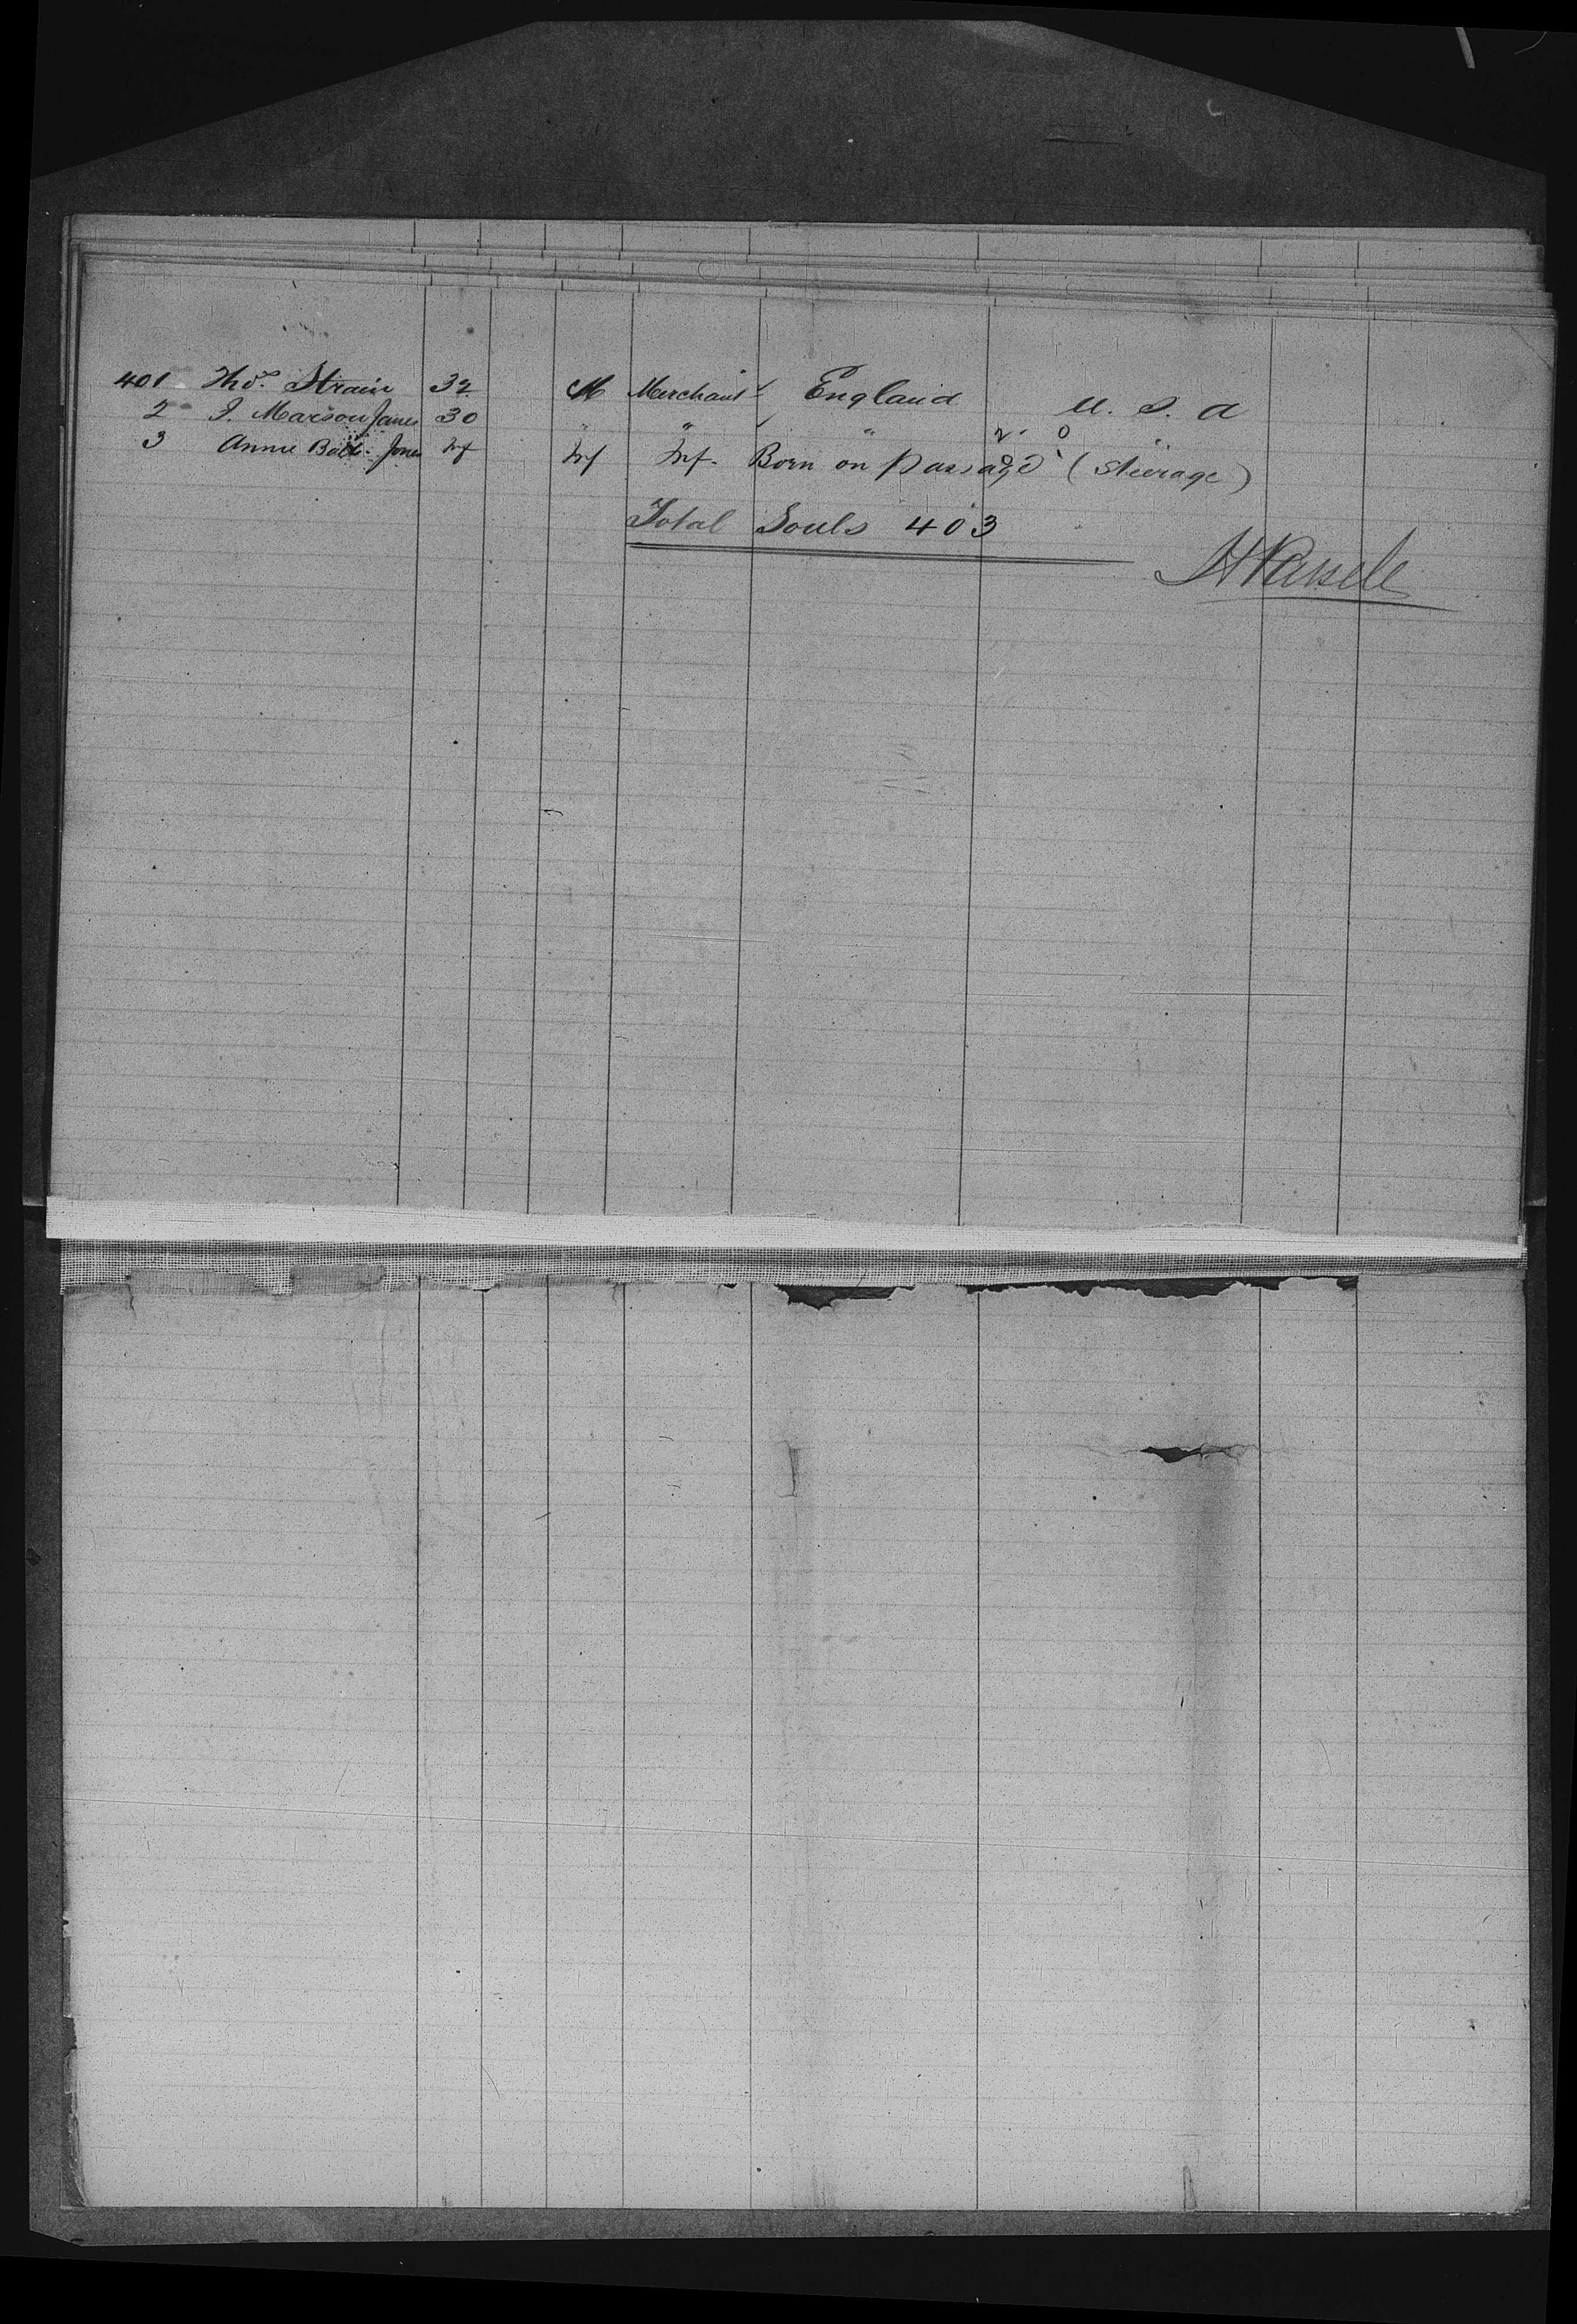 401 Thos. Strain 32 M Merchant England U. S. A
2 I. Marson Jones 30 " " "
3 Annie Balt. Jones Inf Inf Inf. Born on passage (Steerage)
Total Souls 403